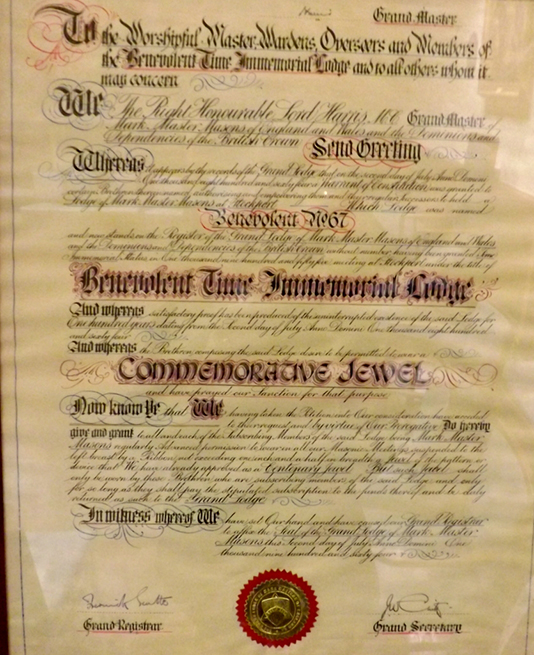 Harris Grand Master
To the Worshipful Master, Wardens, Overseers and Members of
the Benevolent Time Immemorial Lodge and to all others whom it
may concern
We The Right Honourable Lord Harris, Grand Master
Mark Master Masons of England and Wales and the Dominions and
Dependencies of the British Crown Send Greeting
Whereas it appears by the records of the Grand Lodge that on the second day of July Anno Domini
One thousand eight hundred and sixty four a Warrant of Constitution was granted to
Lodge of Mark Master Masons at Stockport Which Lodge was named
Benevolent No 67
and now stands in the Register of the Grand Lodge of Mark Master Masons of England and Wales
and the Dominions and Dependencies of the British Crown without number having been granted Time
Immemorial Status in One thousand nine hundred and fifty five meeting at Stockport under the title of
Benevolent Time Immemorial Lodge
And whereas satisfactory proof has been produced of the uninterrupted existence of the said Lodge for
One hundred years dating from the Second day of July Anno Domini One thousand eight hundred
and sixty four
And whereas the Brethren composing the said Lodge desire to be permitted to wear a
COMMEMORATIVE JEWEL
and have prayed our Sanction for that purpose
Now know Ye that We having taken the Petition into Our consideration have acceded
to the request and by virtue of Our Prerogative Do hereby
give and grant to all and each of the Subscribing Members of the said Lodge being Mark Master
Masons regularly Advanced permission to wear in all our Masonic Meetings suspended to the
left breast by a Ribbon not exceeding one inch and a half in breadth
that We have already approved as a Centenary Jewel But such Jewel shall
only be worn by those Brethren who are subscribing members of the said Lodge and only
for so long as they shall pay the stipulated subscription to the funds thereof and be duly
returned as such to the Grand Lodge
In witness whereof We have set Our hand and have caused our Grand Registrar
to affix the Seal of the Grand Lodge of Mark Master
Masons this Second day of July Anno Domini One
thousand nine hundred and sixty four
Grand Registrar
Grand Secretary